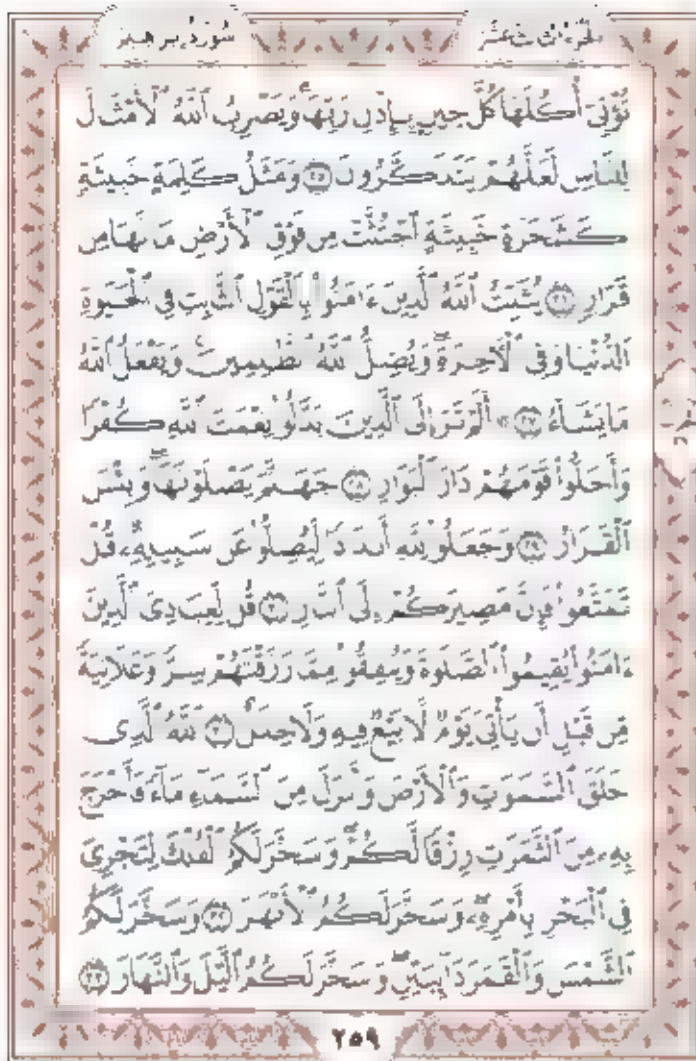 الجزء الثالث عشر سورة إبراهيم
تُؤْتِىٓ أُكُلَهَا كُلَّ حِينٍۭ بِإِذْنِ رَبِّهَاۗ وَيَضْرِبُ ٱللَّهُ ٱلْأَمْثَالَ
لِلنَّاسِ لَعَلَّهُمْ يَتَذَكَّرُونَ ٢٥ وَمَثَلُ كَلِمَةٍ خَبِيثَةٍ
كَشَجَرَةٍ خَبِيثَةٍ ٱجْتُثَّتْ مِن فَوْقِ ٱلْأَرْضِ مَا لَهَا مِن
قَرَارٍ ٢٦ يُثَبِّتُ ٱللَّهُ ٱلَّذِينَ ءَامَنُوا۟ بِٱلْقَوْلِ ٱلثَّابِتِ فِى ٱلْحَيَوٰةِ
ٱلدُّنْيَا وَفِى ٱلْأَخِرَةِۖ وَيُضِلُّ ٱللَّهُ ٱلظَّٰلِمِينَۚ وَيَفْعَلُ ٱللَّهُ
مَا يَشَآءُ ٢٧ ۞ أَلَمْ تَرَ إِلَى ٱلَّذِينَ بَدَّلُوا۟ نِعْمَتَ ٱللَّهِ كُفْرًا
وَأَحَلُّوا۟ قَوْمَهُمْ دَارَ ٱلْبَوَارِ ٢٨ جَهَنَّمَ يَصْلَوْنَهَاۖ وَبِئْسَ
ٱلْقَرَارُ ٢٩ وَجَعَلُوا۟ لِلَّهِ أَندَادًا لِّيُضِلُّوا۟ عَن سَبِيلِهِۦۗ قُلْ
تَمَتَّعُوا۟ فَإِنَّ مَصِيرَكُمْ إِلَى ٱلنَّارِ ٣٠ قُل لِّعِبَادِىَ ٱلَّذِينَ
ءَامَنُوا۟ يُقِيمُوا۟ ٱلصَّلَوٰةَ وَيُنفِقُوا۟ مِمَّا رَزَقْنَٰهُمْ سِرًّا وَعَلَانِيَةً
مِّن قَبْلِ أَن يَأْتِىَ يَوْمٌ لَّا بَيْعٌ فِيهِ وَلَا خِلَٰلٌ ٣١ ٱللَّهُ ٱلَّذِى
خَلَقَ ٱلسَّمَٰوَٰتِ وَٱلْأَرْضَ وَأَنزَلَ مِنَ ٱلسَّمَآءِ مَآءً فَأَخْرَجَ
بِهِۦ مِنَ ٱلثَّمَرَٰتِ رِزْقًا لَّكُمْۖ وَسَخَّرَ لَكُمُ ٱلْفُلْكَ لِتَجْرِىَ
فِى ٱلْبَحْرِ بِأَمْرِهِۦۖ وَسَخَّرَ لَكُمُ ٱلْأَنْهَٰرَ ٣٢ وَسَخَّرَ لَكُمُ
ٱلشَّمْسَ وَٱلْقَمَرَ دَآئِبَيْنِۖ وَسَخَّرَ لَكُمُ ٱلَّيْلَ وَٱلنَّهَارَ ٣٣
٢٥٩